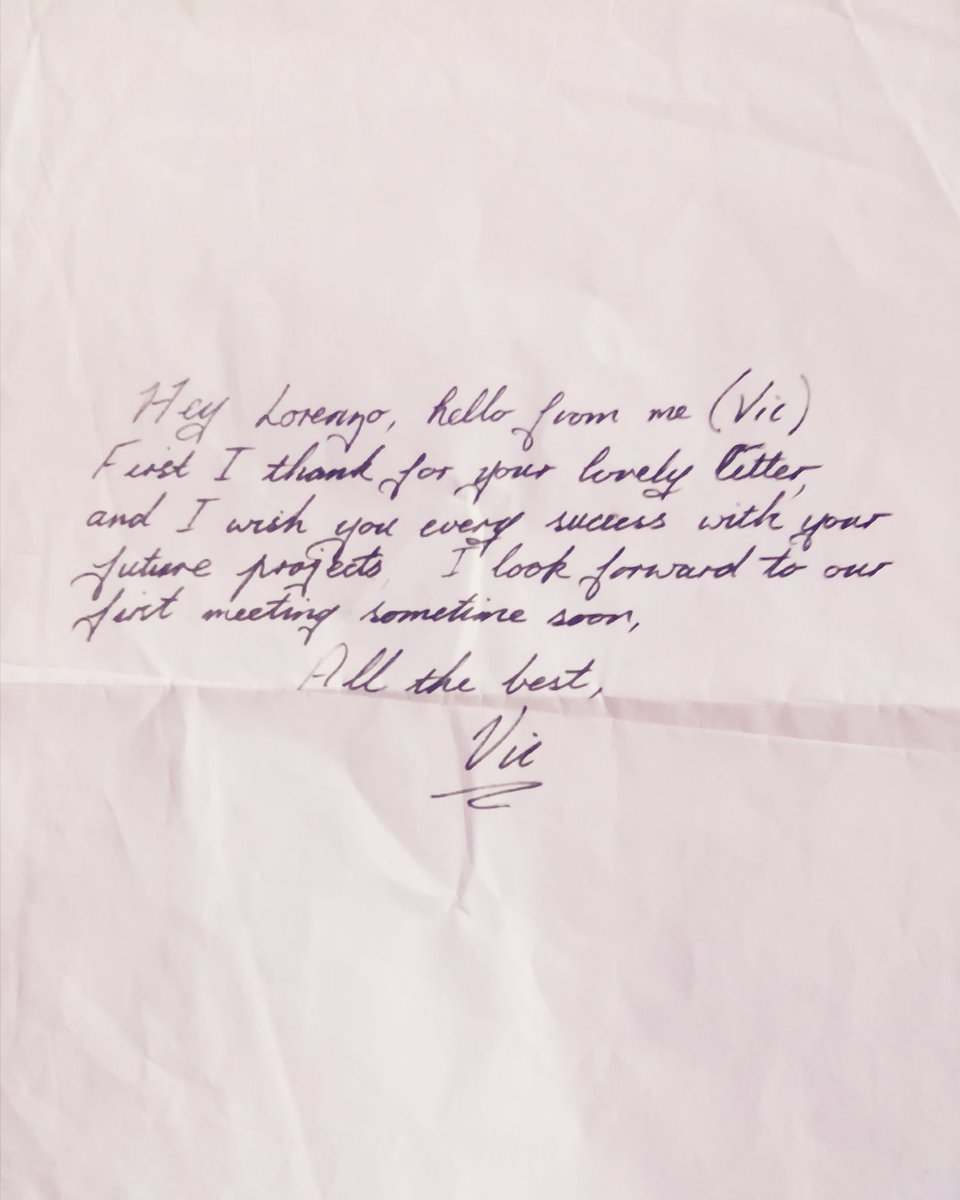 Hey Lorenzo, hello from me (Vic)
First I thank for your lovely letter,
and I wish you every success with your
future projects I look forward to our
first meeting sometime soon,
All the best,
Vic